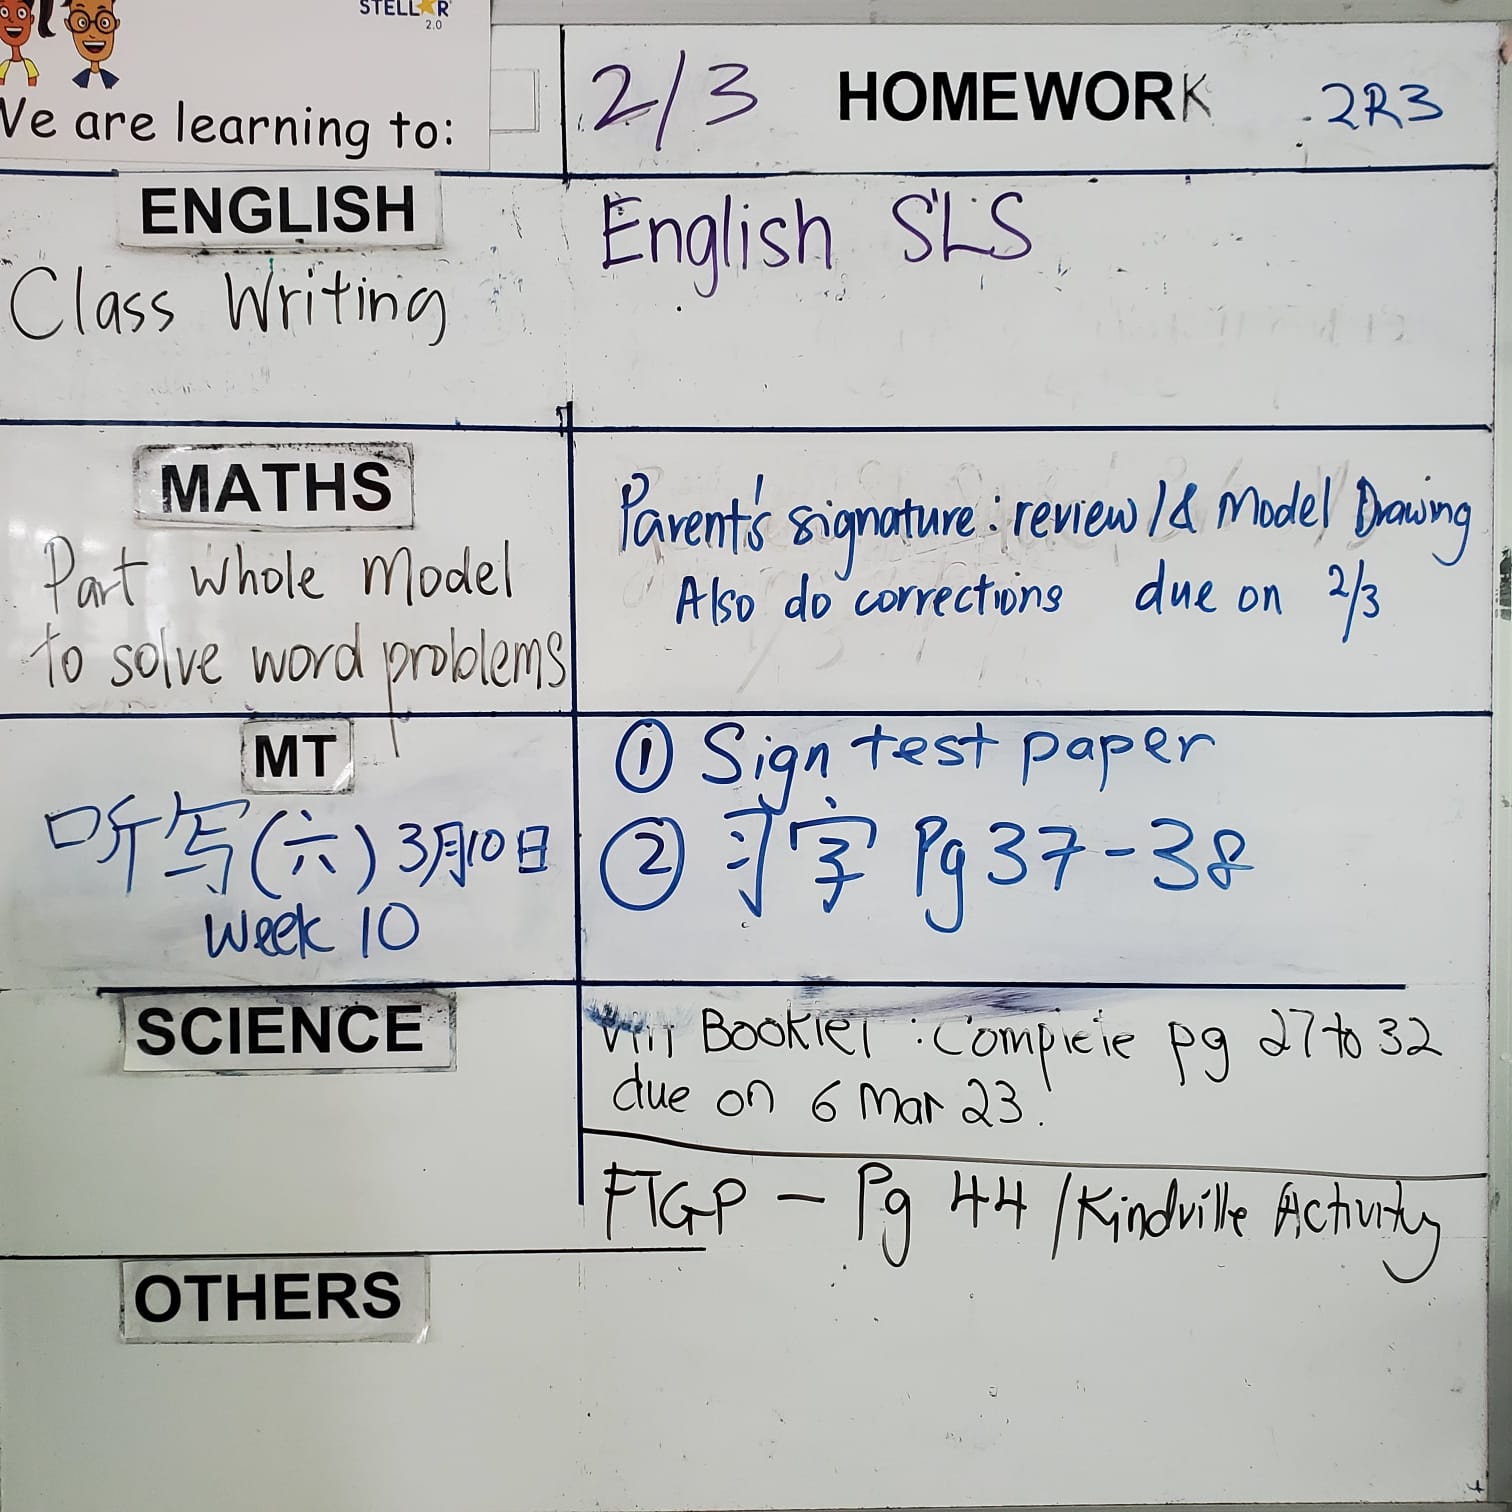 STELLAR
2.0
We are learning to:
2/3 HOMEWORK 2R3
ENGLISH
Class Writing
English SLS
MATHS
Part whole Model
to solve word problems
Parent's signature: review 1 & Model Drawing
Also do corrections due on 2/3
MT
听写(六) 3月10日
Week 10
① Sign test paper
② 习字 Pg 37-38
SCIENCE
Booklet : Complete pg 27 to 32
due on 6 Mar 23.
FTGP - Pg 44 / Kindville Activity
OTHERS